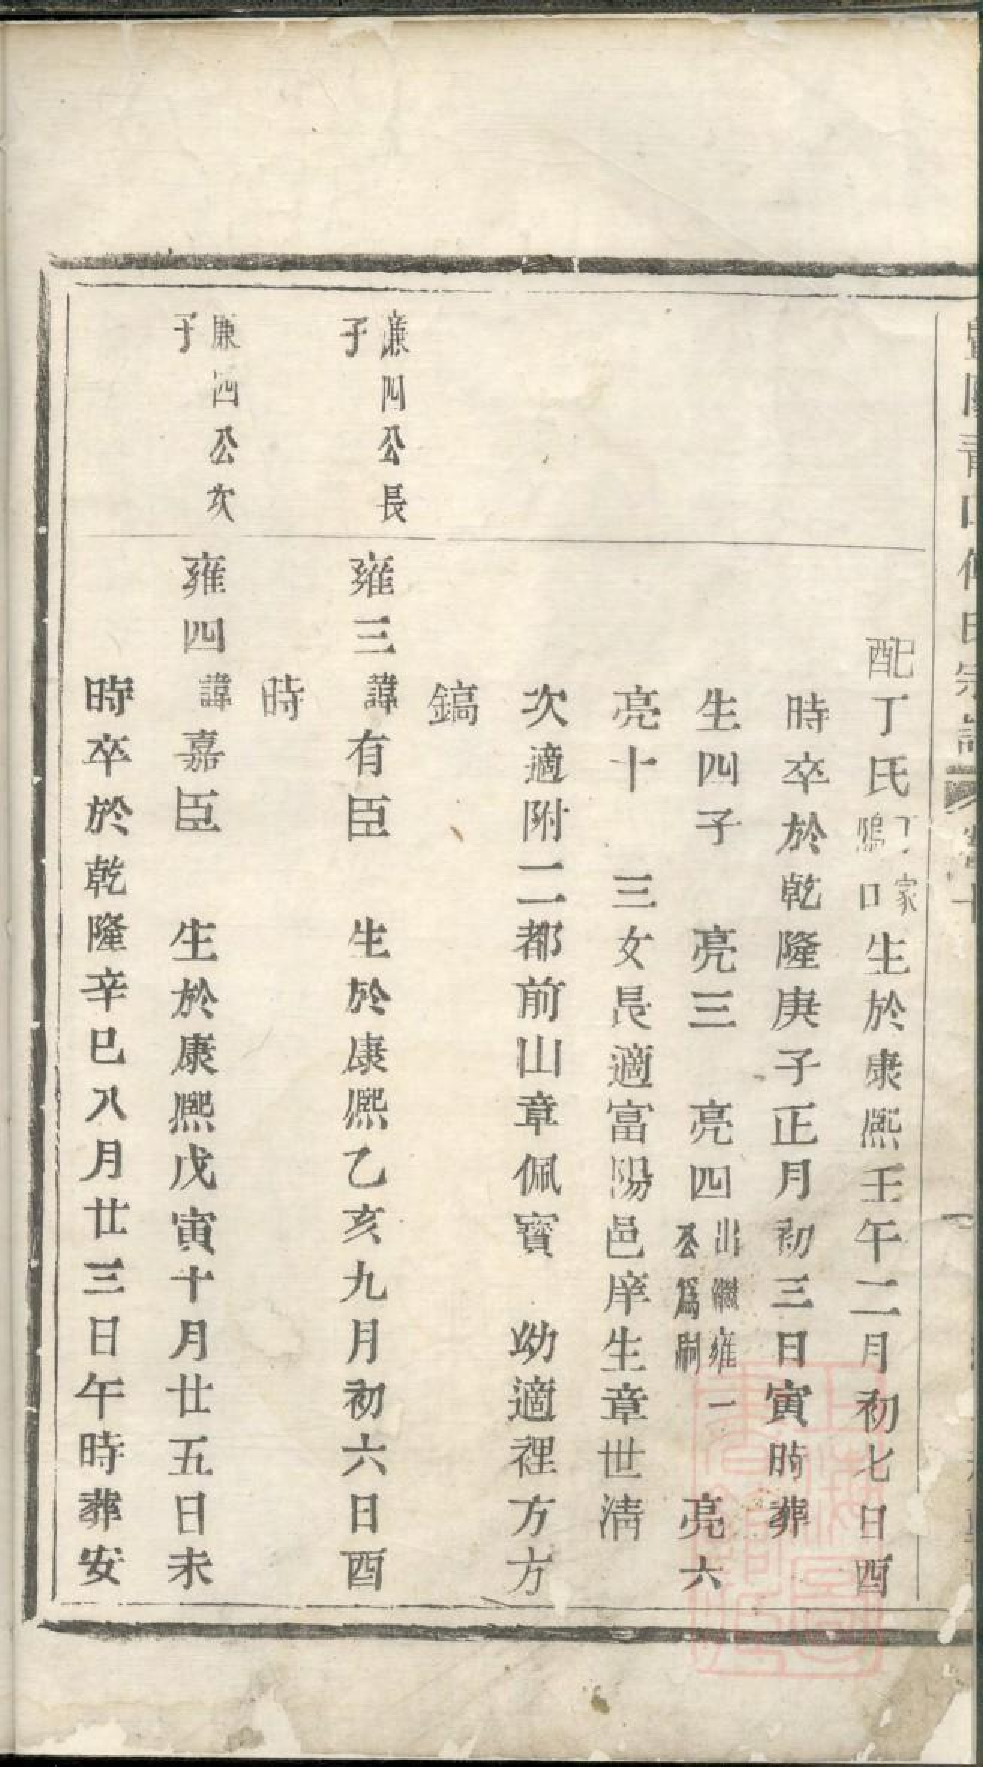 配丁氏丁家鴣口生於康熙壬午二月初七日酉
時卒於乾隆庚子正月初三日寅時葬
生四子　亮三　亮四出繼雍一公爲嗣　亮六
亮十　三女長適富陽邑庠生章世清
次適附二都前山章佩寳　幼適裡方方
鎬
廉四公長子
雍三諱有臣　生於康熙乙亥九月初六日酉
時
廉四公次子
雍四諱嘉臣　生於康熙戊寅十月廿五日未
時卒於乾隆辛巳八月廿三日午時葬安